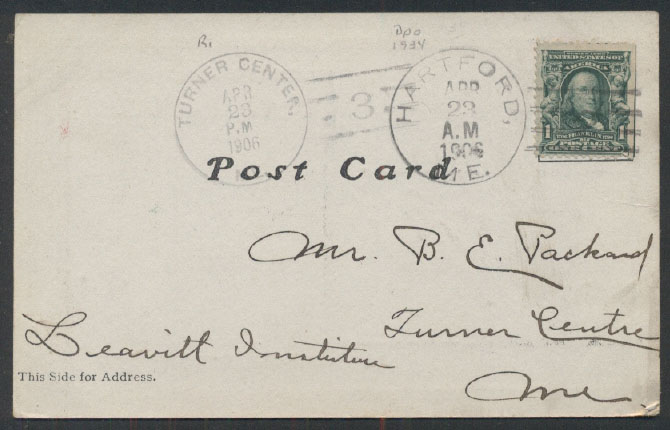 R1
DPO
1934
TURNER CENTER,
APR
23
P.M
1906
3
HARTFORD,
APR
23
A.M
1906
ME.
UNITED STATES OF
AMERICA
FRANKLIN
1 1
POSTAGE
ONE CENT
Post Card
Mr. B. E. Packard
Turner Centre
Leavitt Institute
Me.
This Side for Address.